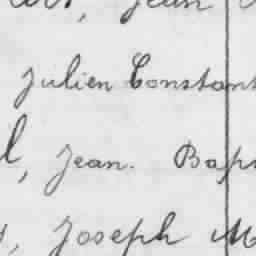 Jean
Julien Constant
l, Jean. Bap
, Joseph M